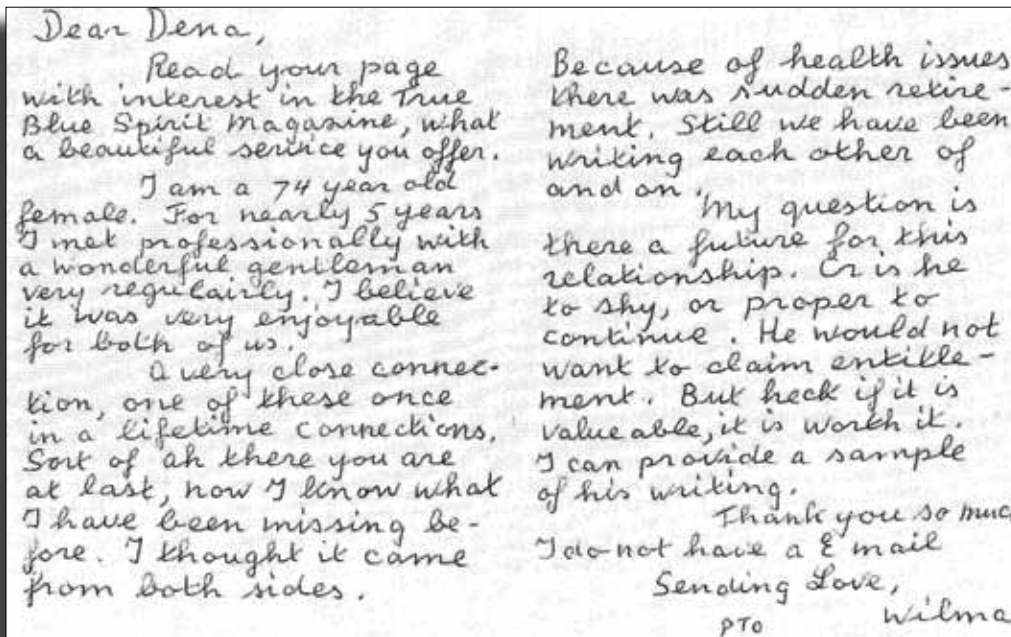 Dear Dena,
Read your page
with interest in the True
Blue Spirit Magazine, what
a beautiful service you offer.
I am a 74 year old
female. For nearly 5 years
I met professionally with
a wonderful gentleman
very regulairly. I believe
it was very enjoyable
for both of us.
A very close connec-
tion, one of these once
in a lifetime connections.
Sort of ah there you are
at last, now I know what
I have been missing be-
fore. I thought it came
from both sides.
Because of health issues
there was sudden retire-
ment. Still we have been
writing each other of
and on.
My question is
there a future for this
relationship. Or is he
to shy, or proper to
continue. He would not
want to claim entitle-
ment. But heck if it is
valueable, it is worth it.
I can provide a sample
of his writing.
Thank you so much
I do not have a E mail
Sending Love,
Wilma
PTO